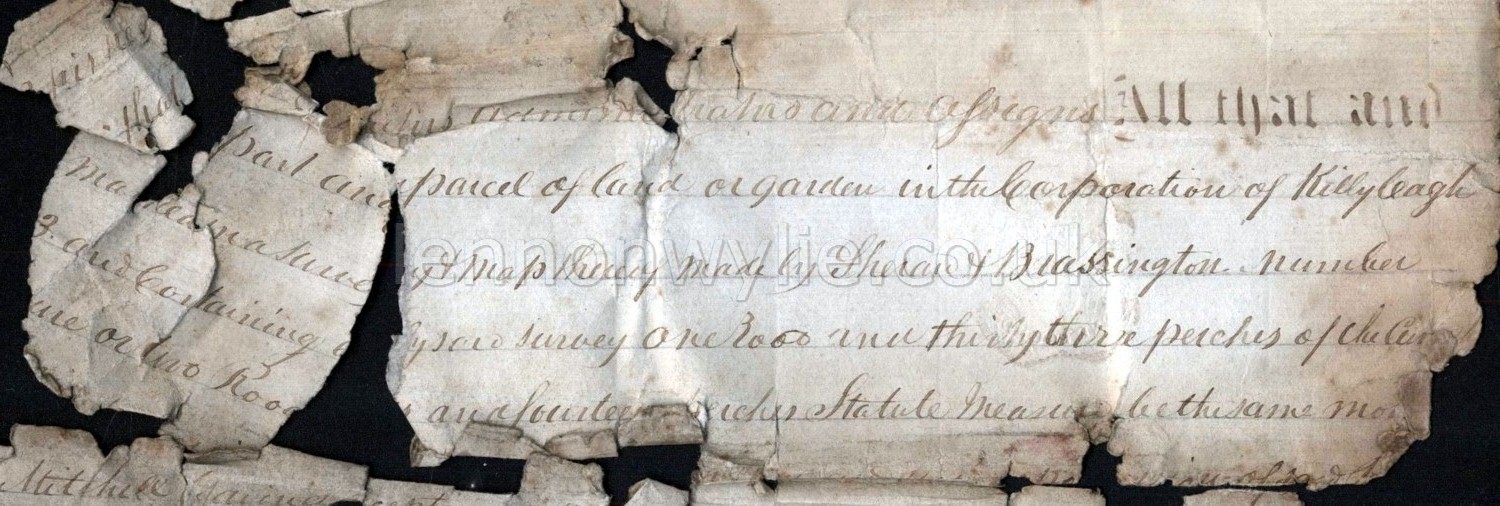 his he
that administrators and assigns All that and
part and parcel of land or garden in the Corporation of Killyleagh
marked in a survey & map thereof made by Sherard & Brassington Number
3 and Containing by said survey One Rood and thirty three perches of the Cun
me or two Rood and fourteen perches Statute Measure be the same mor
Mitchell
lennonwylie.co.uk